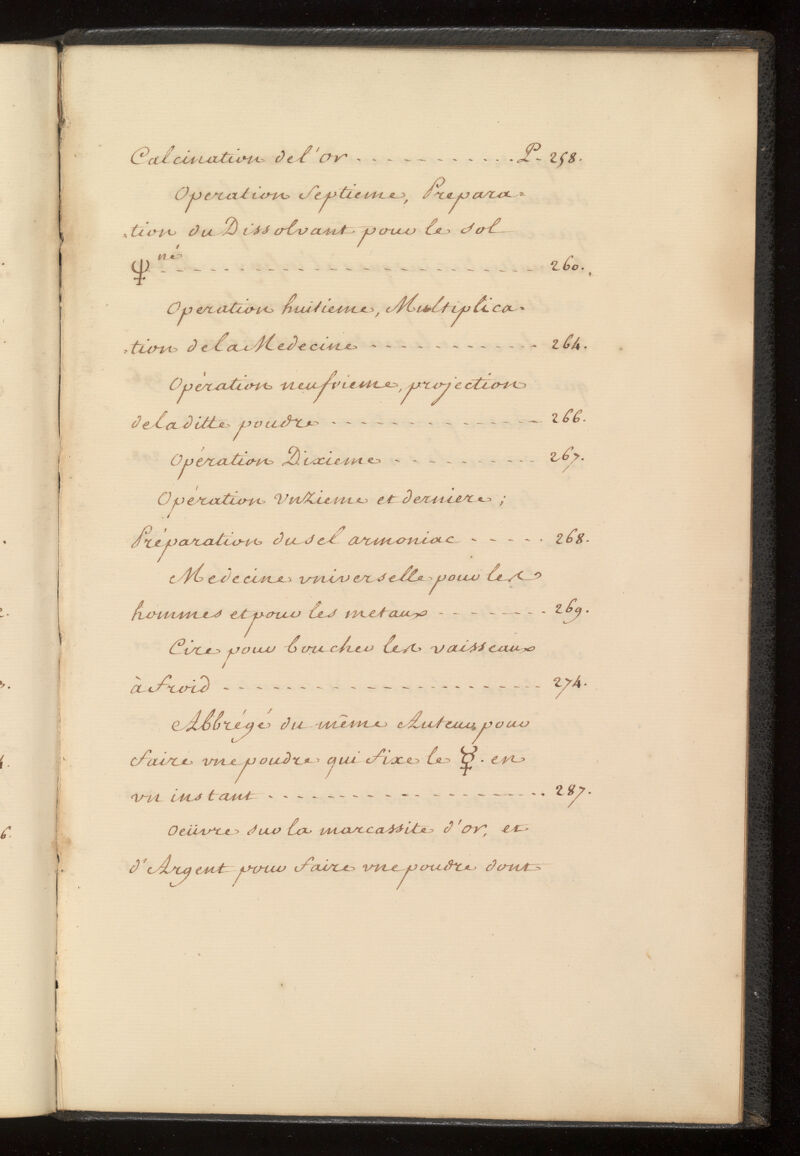 Calcination de l'or - - - - - - - - - - - P. 258.
Operation Septieme, Prepara=
=tion du Dissolvant pour le sol
☿né - - - - - - - - - - - - - - - - - - - 260.
Operation huitieme, Multiplica=
=tion de la Medecine - - - - - - - - - - - 264.
Opération neufvieme, projection
de la ditte poudre - - - - - - - - - - - - - 266.
Opération Dixieme - - - - - - - - - - 267.
Opération vnzieme et derniere;
Préparation du sel armoniac - - - - - 268.
Medecine vniverselle pour les
hommes et pour les metaux - - - - - - - - 269.
Cire pour boucher les vaisseaux
à froid - - - - - - - - - - - - - - - - - - - - 274.
Abbrégé du même Auteur, pour
faire vne poudre qui fixe le ☿. en
vn instant - - - - - - - - - - - - - - - - - - 287.
oeüvre sur la marcassite d'or, et
d'Argent pour faire vne poudre dont
2.
3.
4.
6.